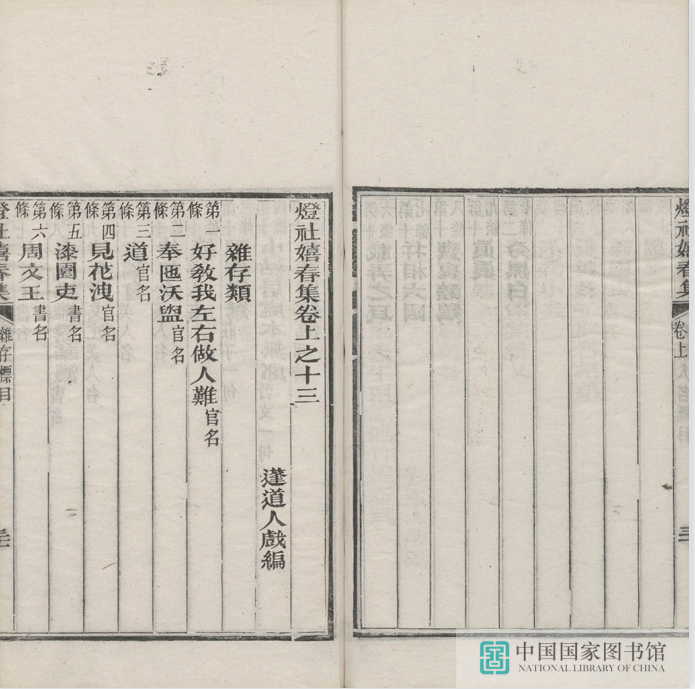 燈社嬉春集
卷上
三
燈社嬉春集卷上之十三
蘧道人戲編
雜存類
第一條 好教我左右做人難 官名
第二條 奉匜沃盥 官名
第三條 道 官名
第四條 見花洩 官名
第五條 漆園吏 書名
第六條 周文王 書名
燈社嬉春集
雜存標目
中国国家图书馆
NATIONAL LIBRARY OF CHINA